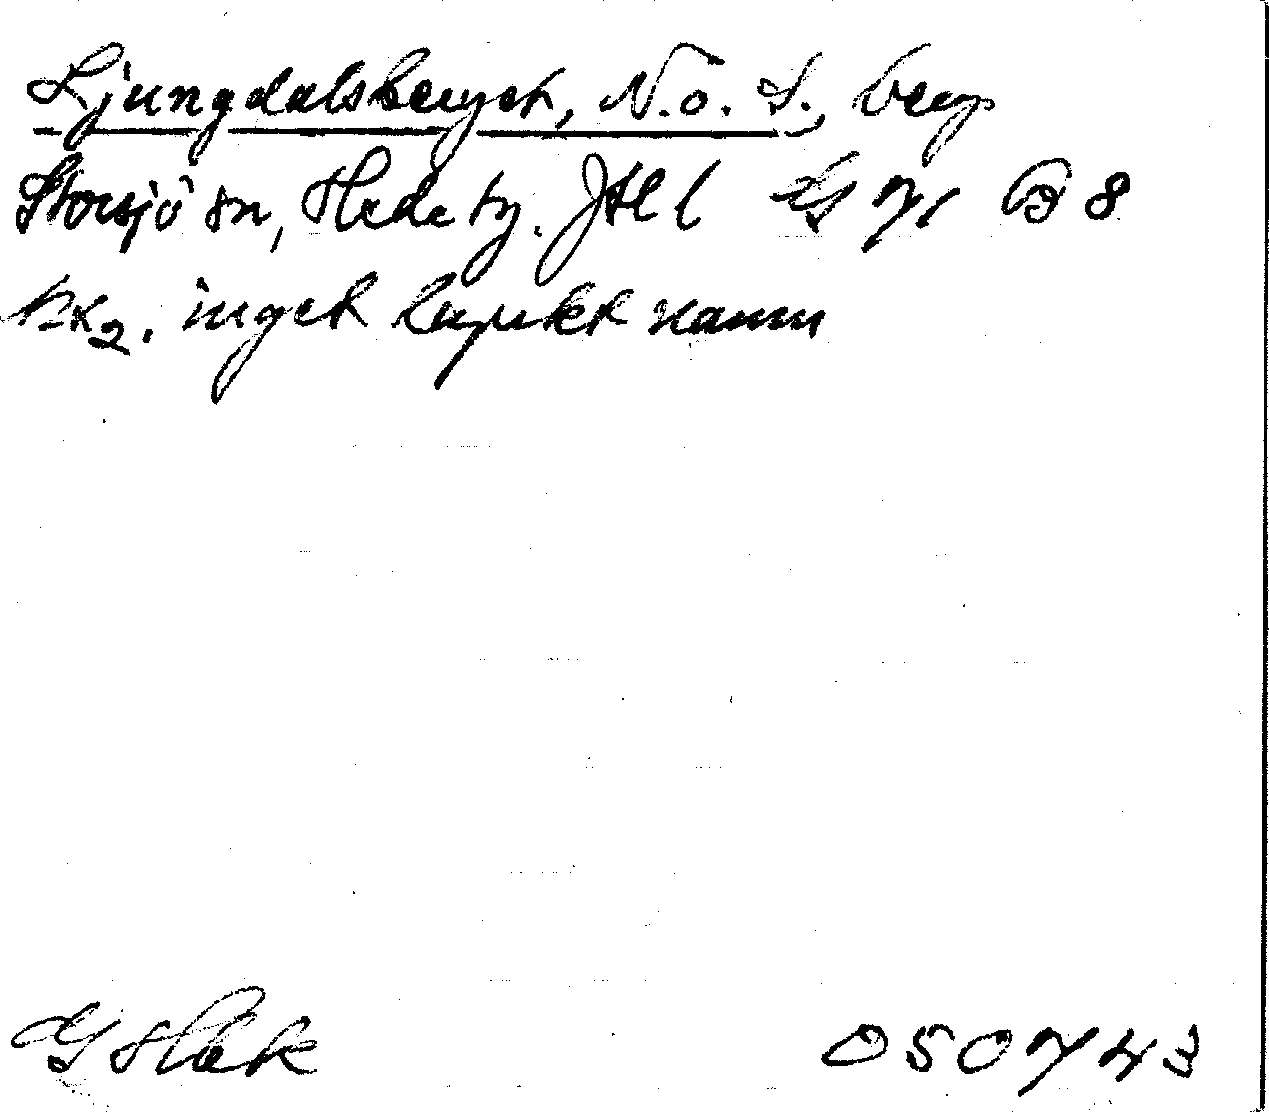 Ljungdalsberget, N. o. S., berg
Storsjö sn, Hede tg. Jtl l 71 B 8
kk2. inget lapskt namn
050743